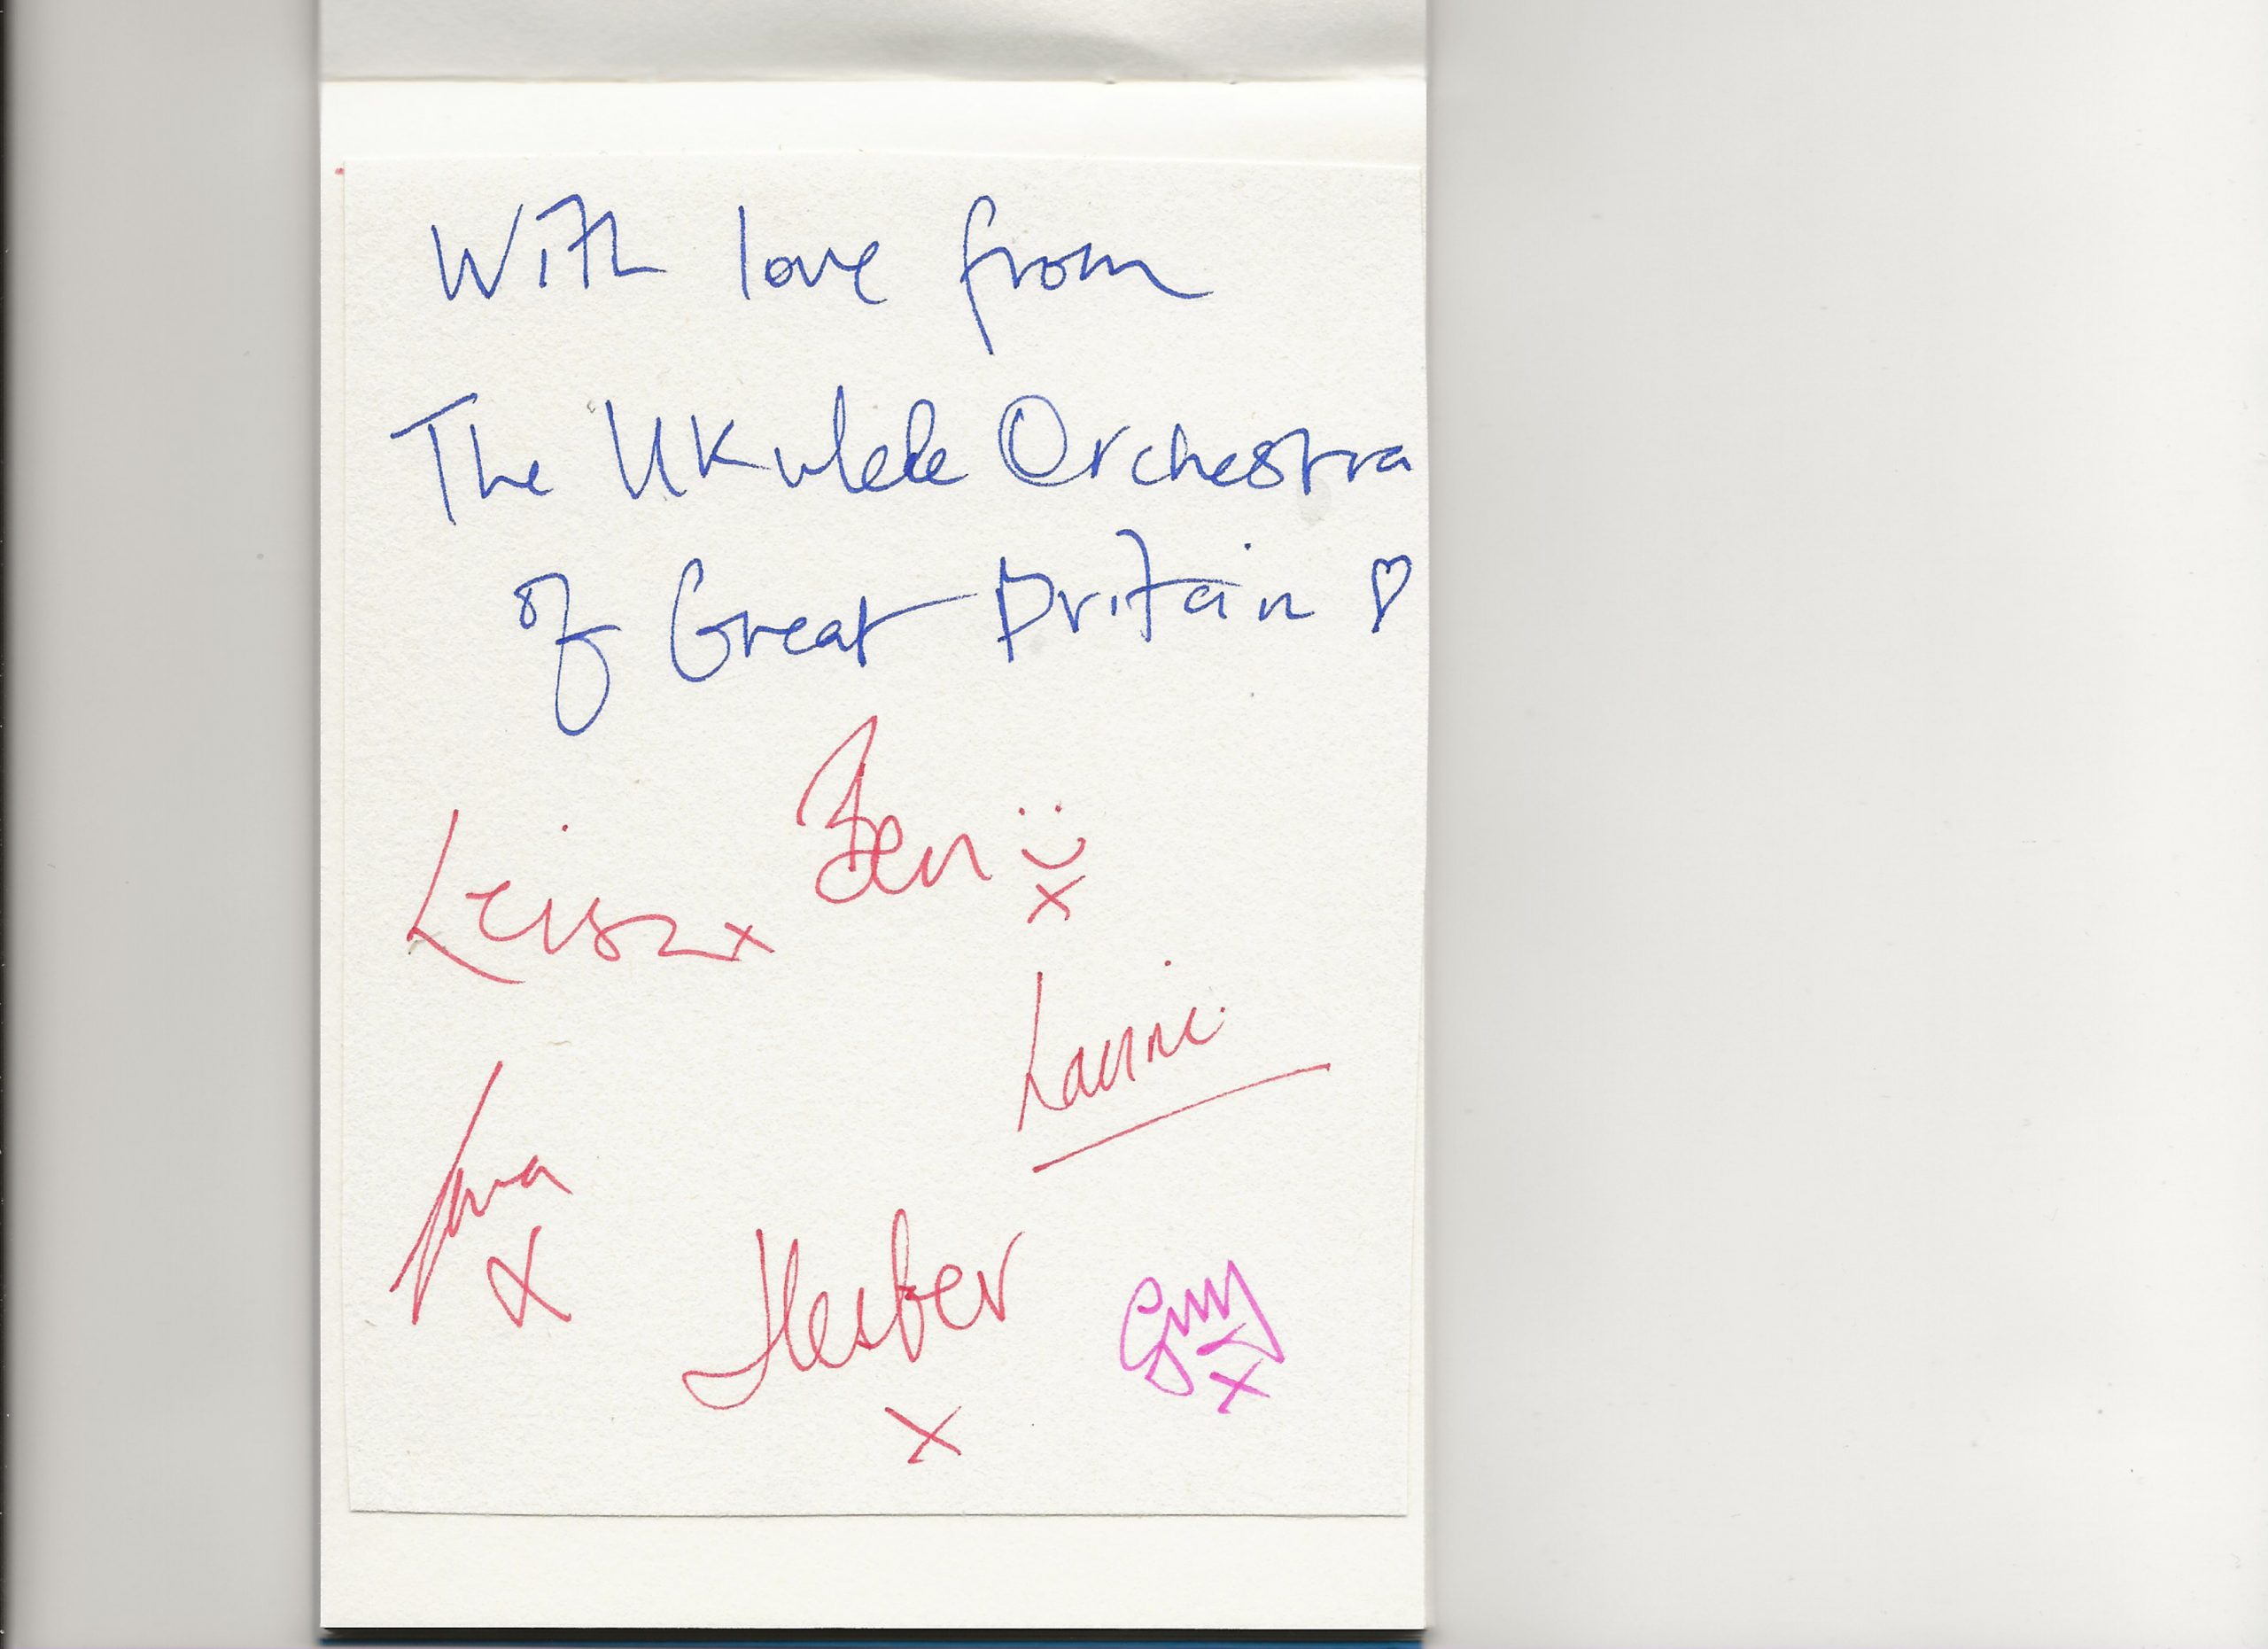 With love from
The Ukulele Orchestra
of Great Britain ♡
Ben :)
x
Leisa x
Laurie
x
Hester
x
Guy
x